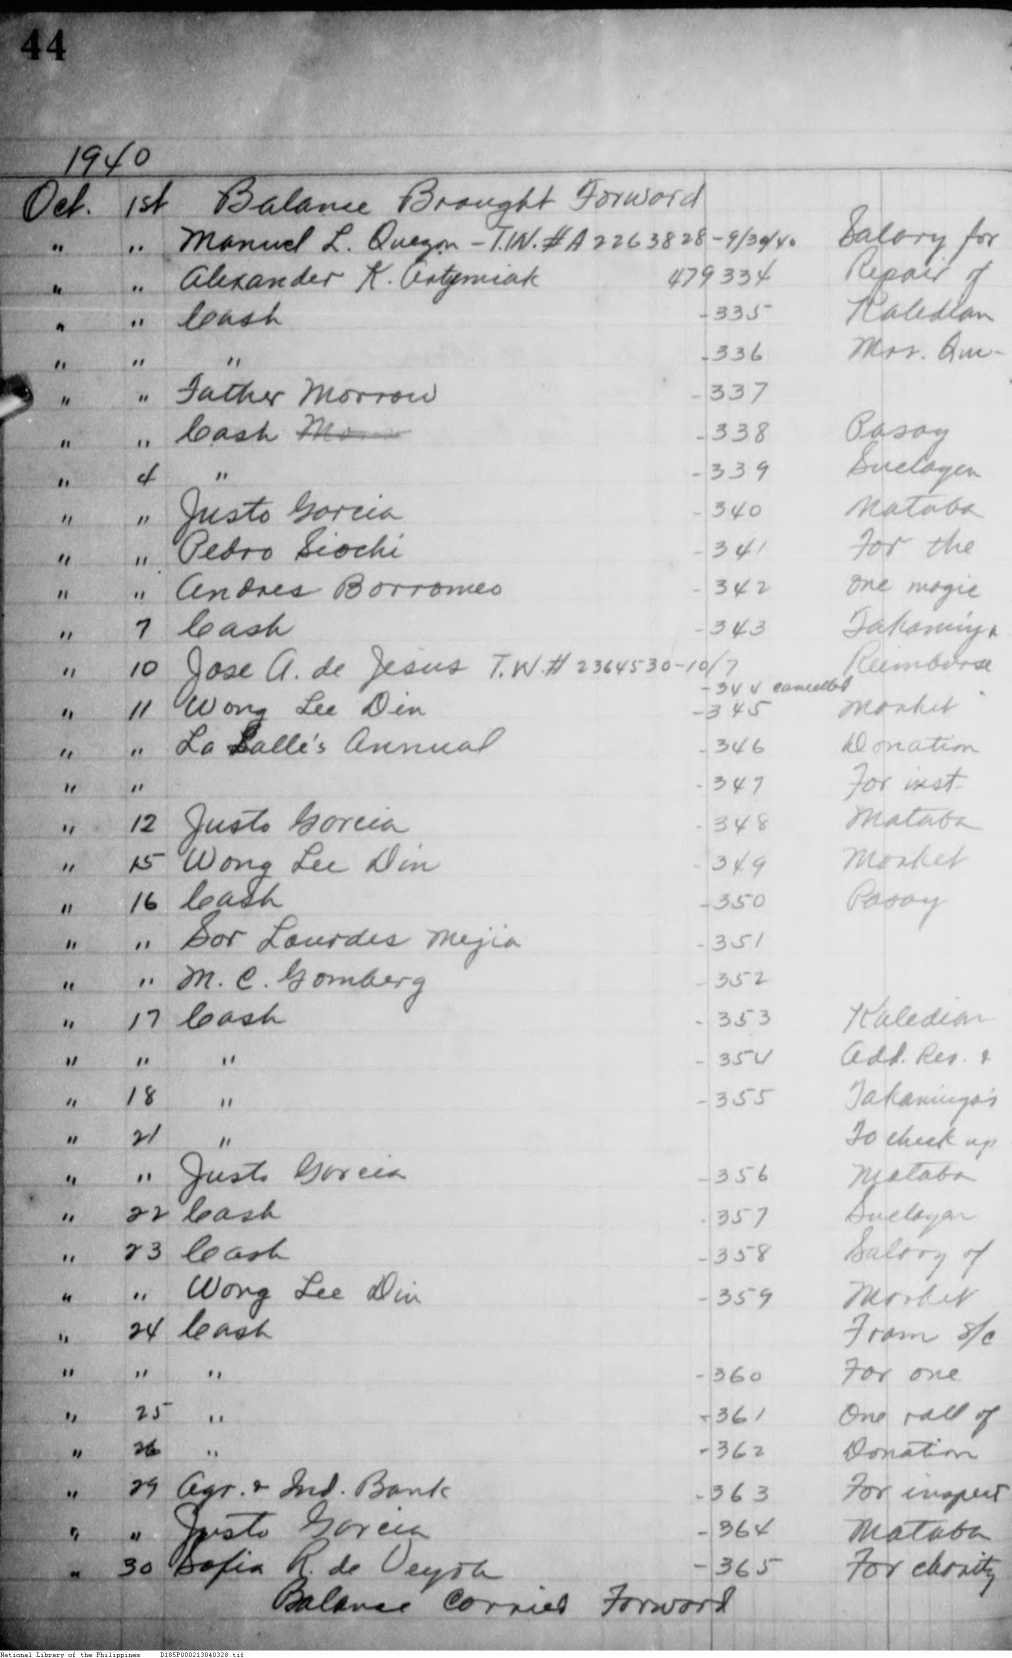 44
1940
Oct. 1st Balance Brought Forward
" " Manuel L. Quezon - T.W. #A2263828 - 9/30/40 Salary for
" " Alexander K. 479334 Repair of
" " Cash -335
" " " -336 Mrs. Que-
" " Father Morrow -337
" " Cash -338 Pasay
" 4 " -339
" " Justo Garcia -340 Mataba
" " Pedro Siochi -341 For the
" " Andres Borromeo -342 One magic
" 7 Cash -343
" 10 Jose A. de Jesus T.W.# 2364530-10/7 Reimburse
-344 cancelled
" 11 Wong Lee Din -345 Market
" " La Salle's Annual -346 Donation
" " -347 For inst-
" 12 Justo Garcia -348 Mataba
" 15 Wong Lee Din -349 Market
" 16 Cash -350 Pasay
" " Sor Lourdes Mejia -351
" " M. C. Gomberg -352
" 17 Cash -353
" " " -354 Add. Res. &
" 18 " -355
" 21 " To check up
" " Justo Garcia -356 Mataba
" 22 Cash -357
" 23 Cash -358 Salary of
" " Wong Lee Din -359 Market
" 24 Cash From S/c
" " " -360 For one
" 25 " -361 One roll of
" 26 " -362 Donation
" 29 Agr. & Ind. Bank -363 For inspect
" " Justo Garcia -364 Mataba
" 30 Sofia R. de Veyra -365 For charity
Balance Carried Forward
National Library of the Philippines D185P000213040328.tif